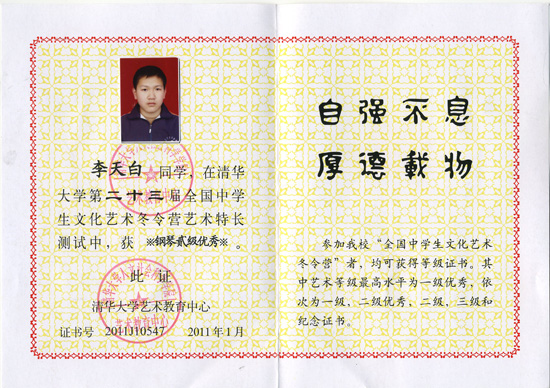 李天白 同学，在清华
大学第二十三届全国中学
生文化艺术冬令营艺术特长
测试中，获 ※钢琴贰级优秀※ 。
此 证
清华大学艺术教育中心
证书号 2011J10547 2011年1月
艺术教育中心
自强不息
厚德載物
参加我校“全国中学生文化艺术
冬令营”者，均可获得等级证书。其
中艺术等级最高水平为一级优秀，依
次为一级，二级优秀，二级、三级和
纪念证书。